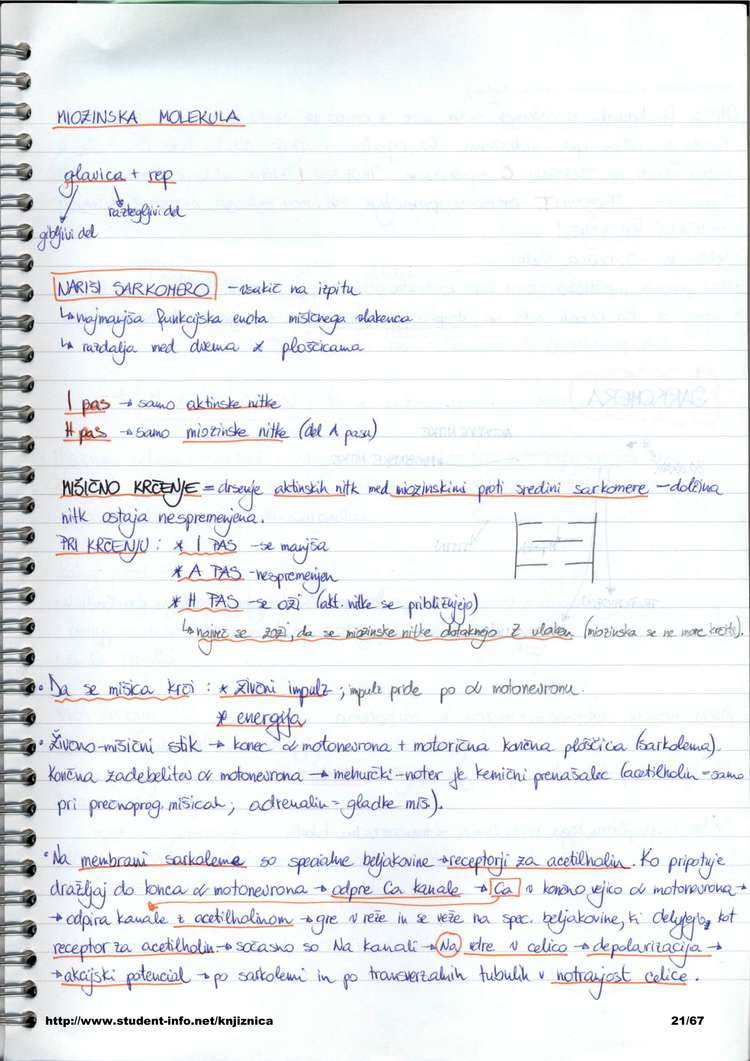 MIOZINSKA MOLEKULA
glavica + rep
raztegljivi del
gibljivi del
NARIŠI SARKOMERO - vsakič na izpitu
↳ najmanjša funkcijska enota mišičnega vlakenca
↳ razdalja med dvema Z ploščicama
I pas → samo aktinske nitke
H pas → samo miozinske nitke (del A pasu)
MIŠIČNO KRČENJE = drsenje aktinskih nitk med miozinskimi proti sredini sarkomere - dolžina
nitk ostaja nespremenjena.
PRI KRČENJU : * I PAS - se manjša
* A PAS - nespremenjen
* H PAS - se oži (akt. nitke se približujejo)
↳ največ se zoži, da se miozinske nitke dotaknejo Z vlaken (miozinska se ne more krčiti).
• Da se mišica krči : * živčni impulz ; impulz pride po α motonevronu.
* energija
• Živčno-mišični stik → konec α motonevrona + motorična končna ploščica (sarkolema).
Končna zadebelitev α motonevrona → mehurčki - noter je kemični prenašalec (acetilholin = samo
pri prečnoprog. mišicah ; adrenalin = gladke miš).
• Na membrani sarkoleme so specialne beljakovine → receptorji za acetilholin. Ko pripotuje
dražljaj do konca α motonevrona → odpre Ca kanale → Ca v končno vejico α motonevrona →
→ odpira kanale z acetilholinom → gre v reže in se veže na spec. beljakovine, ki delujejo kot
receptor za acetilholin → sočasno so Na kanali → Na vdre v celico → depolarizacija →
→ akcijski potencial → po sarkolemi in po transverzalnih tubulih v notranjost celice.
http://www.student-info.net/knjiznica
21/67